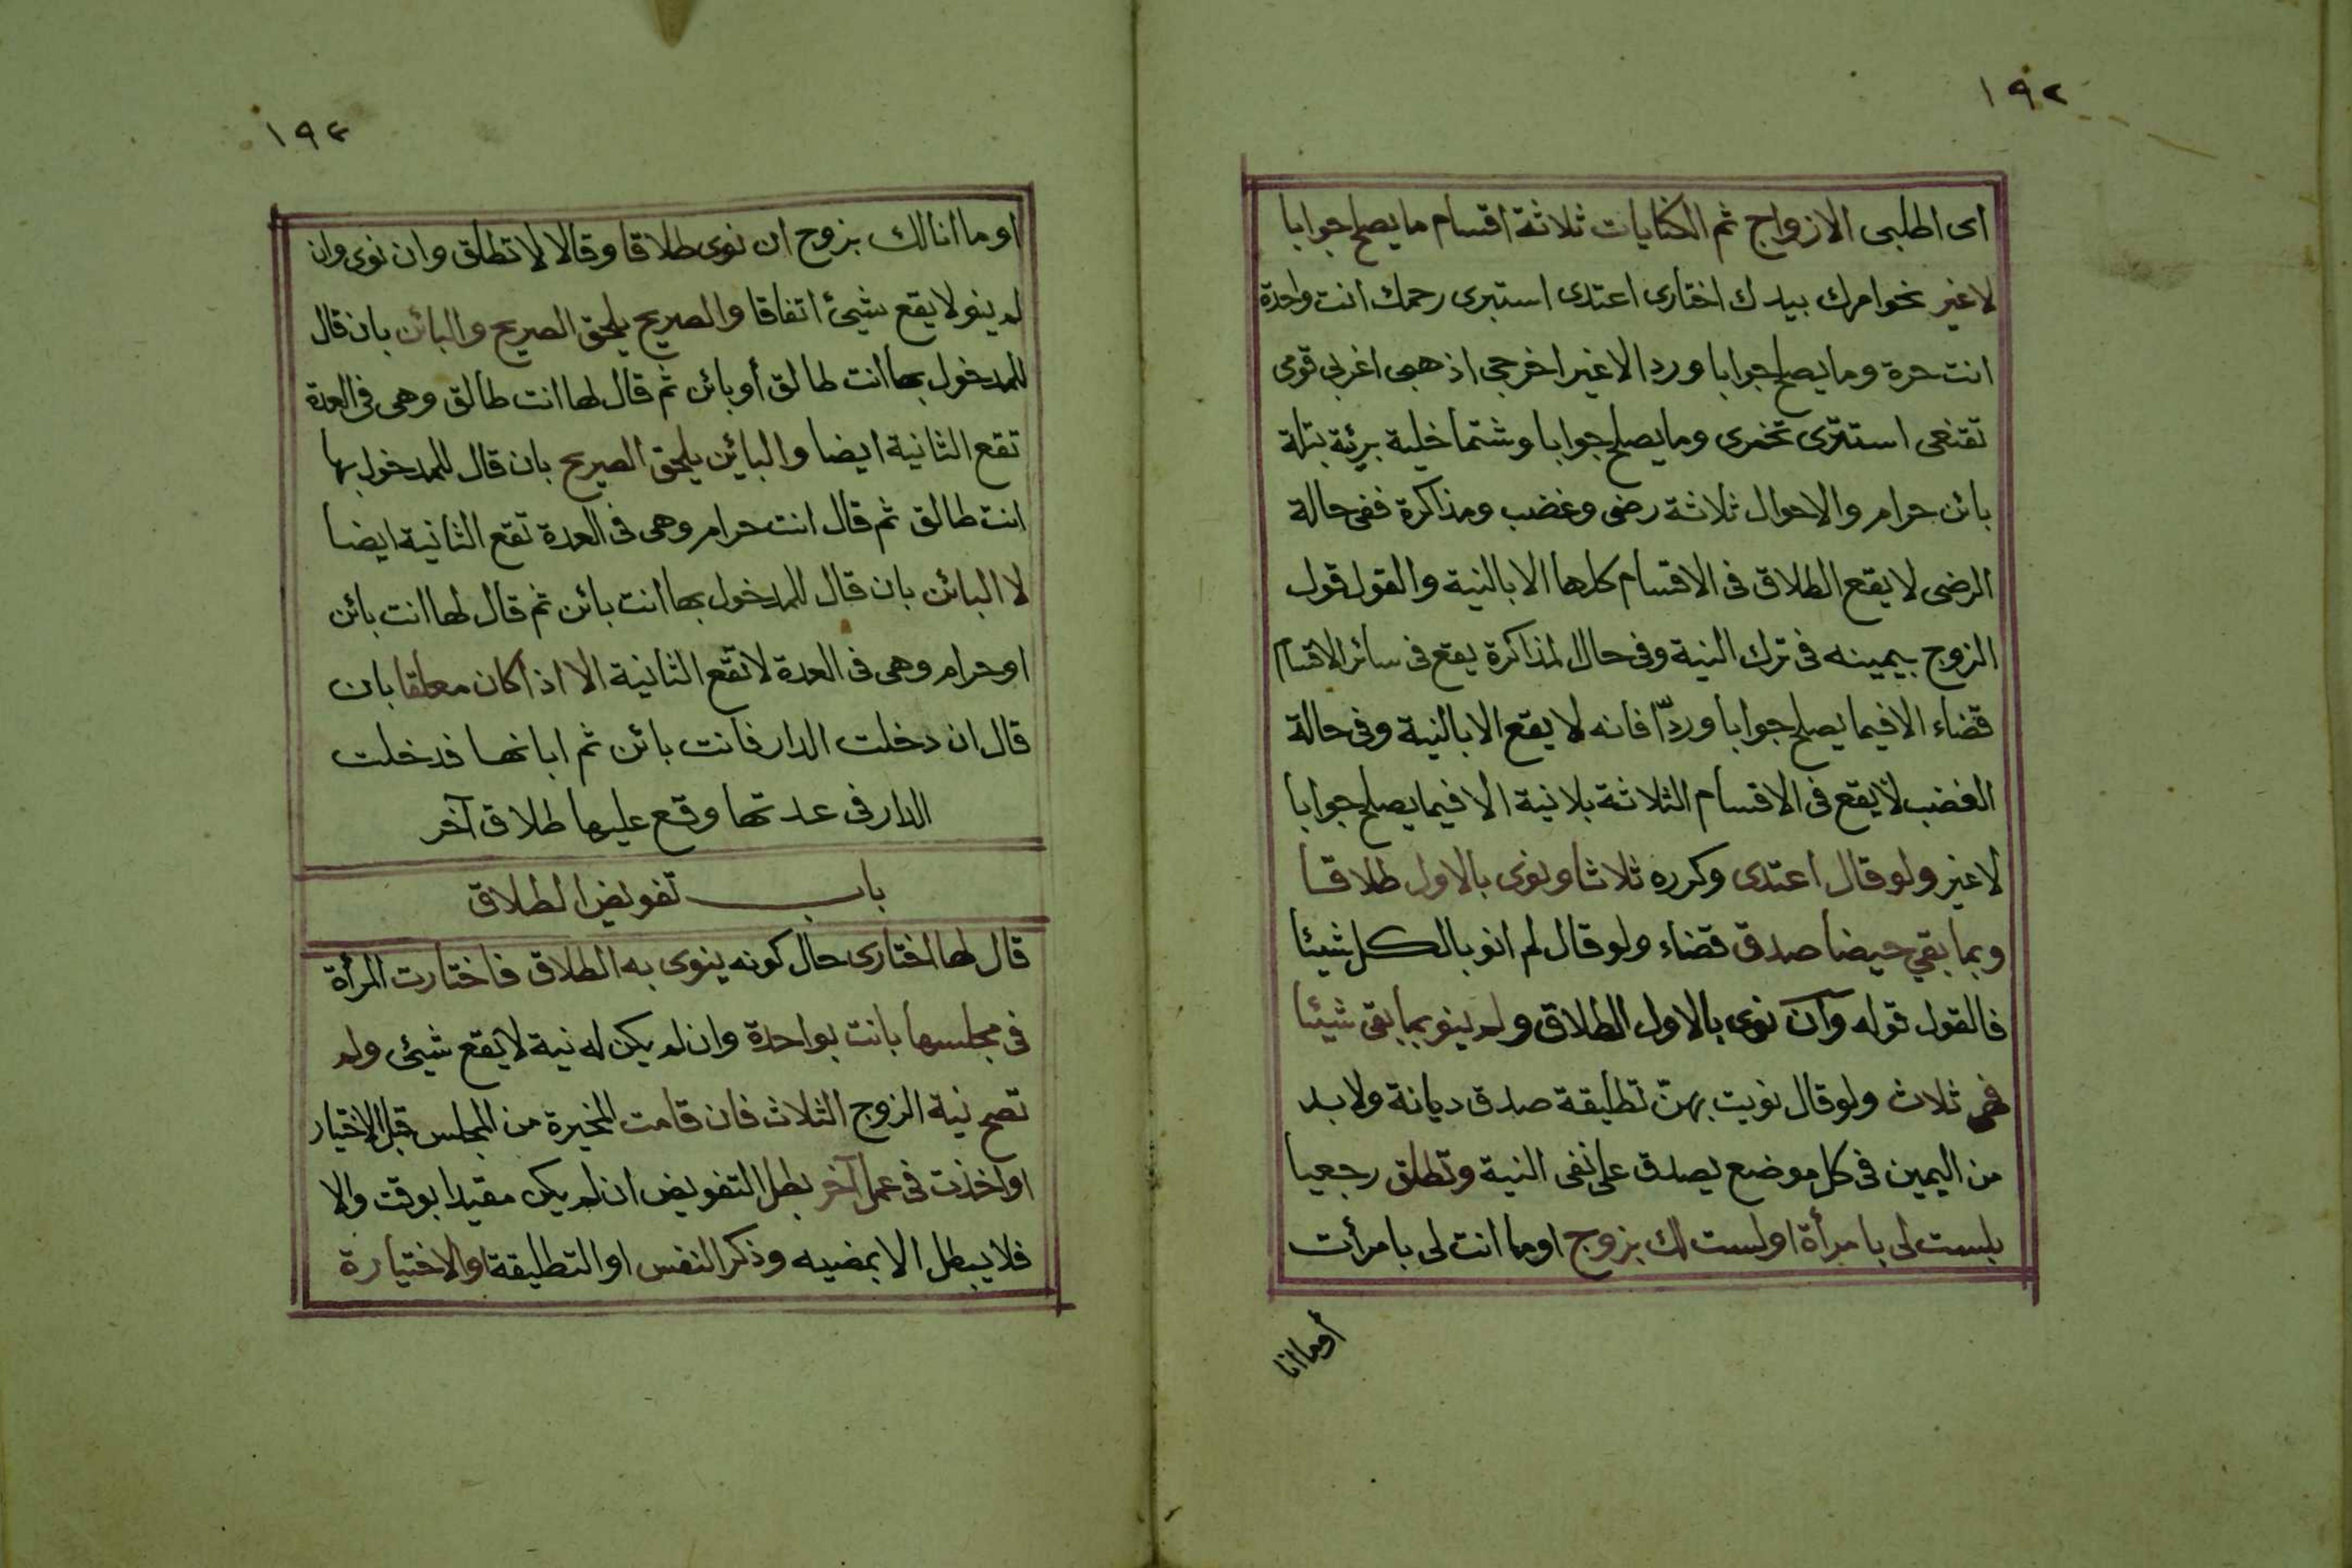 ١٩٢
اى اطلبى الازواج ثم الكنايات ثلاثة اقسام ما يصلح جوابا
لا غير نحو امرك بيدك اختارى اعتدى استبرى رحمك انت واحدة
انت حرة وما يصلح جوابا وردا لا غير اخرجى اذهبى اغربى قومى
تقنعى استترى تخمرى وما يصلح جوابا وشتما خلية برئية بتلة
بائن حرام والاحوال ثلاثة رضى وغضب ومذاكرة ففى حالة
الرضى لا يقع الطلاق فى الاقسام كلها الا بالنية والقول قول
الزوج بيمينه فى ترك النية وفى حال المذاكرة يقع فى سائر الاقسام
قضاء الا فيما يصلح جوابا وردّا فانه لا يقع الا بالنية وفى حالة
الغضب لا يقع فى الاقسام الثلاثة بلا نية الا فيما يصلح جوابا
لا غير ولو قال اعتدى وكرره ثلاثا ونوى بالاول طلاقا
وبما بقي حيضا صدق قضاء ولو قال لم انو بالكل شيئا
فالقول قوله وان نوى بالاول الطلاق ولم ينو بما بقى شيئا
فهى ثلاث ولو قال نويت بهنّ تطليقة صدق ديانة ولا بد
من اليمين فى كل موضع يصدق على نفى النية وتطلق رجعيا
بلست لى بامرأة او لست لك بزوج او ما انت لى بامرأت
أو ما انا
١٩٣
او ما انا لك بزوج ان نوى طلاقا وقالا لا تطلق وان نوى وان
لم ينو لا يقع شيئ اتفاقا والصريح يلحق الصريح والبائن بان قال
للمدخول بها انت طالق أو بائن ثم قال لها انت طالق وهى فى العدة
تقع الثانية ايضا والبائن يلحق الصريح بان قال للمدخول بها
انت طالق ثم قال انت حرام وهى فى العدة تقع الثانية ايضا
لا البائن بان قال للمدخول بها انت بائن ثم قال لها انت بائن
او حرام وهى فى العدة لا تقع الثانية الا اذا كان معلقا بان
قال ان دخلت الدار فانت بائن ثم ابانها فدخلت
الدار فى عدتها وقع عليها طلاق آخر
باب تفويض الطلاق
قال لها اختارى حال كونه ينوى به الطلاق فاختارت المرأة
فى مجلسها بانت بواحدة وان لم يكن له نية لا يقع شيئ ولم
تصح نية الزوج الثلاث فان قامت المخيرة من المجلس قبل الاختيار
او اخذت فى عمل آخر بطل التفويض ان لم يكن مقيدا بوقت والا
فلا يبطل الا بمضيه وذكر النفس او التطليقة او الاختيارة